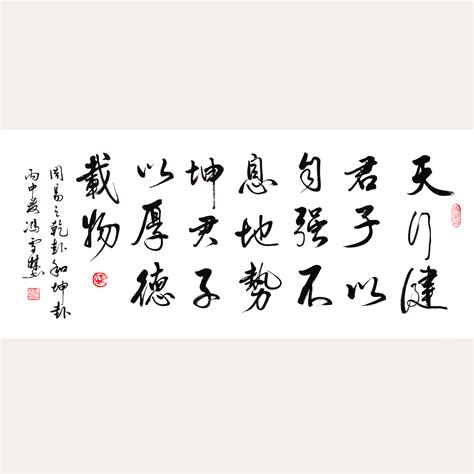 天行健
君子以
自强不
息地勢
坤君子
以厚德
載物
周易之乾卦和坤卦
丙申冯雪